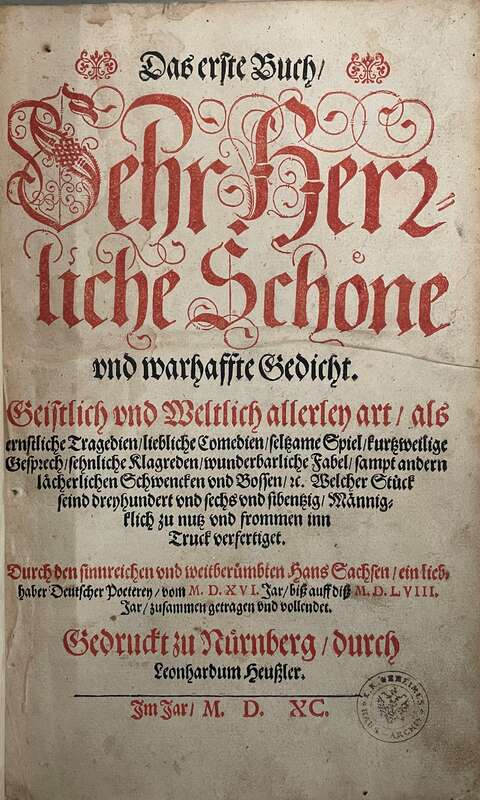 Das erste Buch/
Sehr Herr⸗
liche Schöne
vnd warhaffte Gedicht.
Geistlich vnd Weltlich allerley art/ als
ernstliche Tragedien/liebliche Comedien/seltzame Spiel/kurtzweilige
Gesprech/sehnliche Klagreden/wunderbarliche Fabel/sampt andern
lächerlichen Schwencken vnd Bossen/ ꝛc. Welcher Stück
seind dreyhundert vnd sechs vnd sibentzig/ Männig⸗
klich zu nutz vnd frommen inn
Truck verfertiget.
Durch den sinnreichen vnd weitberümbten Hans Sachsen/ ein lieb⸗
haber Deutscher Poeterey/ vom M. D. XVI. Jar/ biß auff diß M. D. L VIII.
Jar/ zusammen getragen vnd vollendet.
Gedruckt zu Nürnberg/ durch
Leonhardum Heußler.
Im Jar/ M. D. XC.